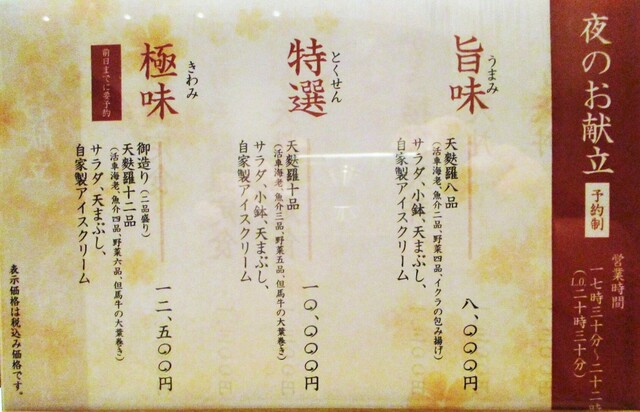 夜のお献立
予約制
営業時間
一七時三十分〜二十二時
（L.O.二十時三十分）
うまみ
旨味
天麩羅八品
（活車海老、魚介二品、野菜四品、イクラの包み揚げ）
サラダ、小鉢、天まぶし、
自家製アイスクリーム
八、〇〇〇円
とくせん
特選
天麩羅十品
（活車海老、魚介三品、野菜五品、但馬牛の大葉巻き）
サラダ、小鉢、天まぶし、
自家製アイスクリーム
一〇、〇〇〇円
きわみ
極味
前日までに要予約
御造り（二品盛り）
天麩羅十二品
（活車海老、魚介四品、野菜六品、但馬牛の大葉巻き）
サラダ、天まぶし、
自家製アイスクリーム
一二、五〇〇円
表示価格は税込み価格です。